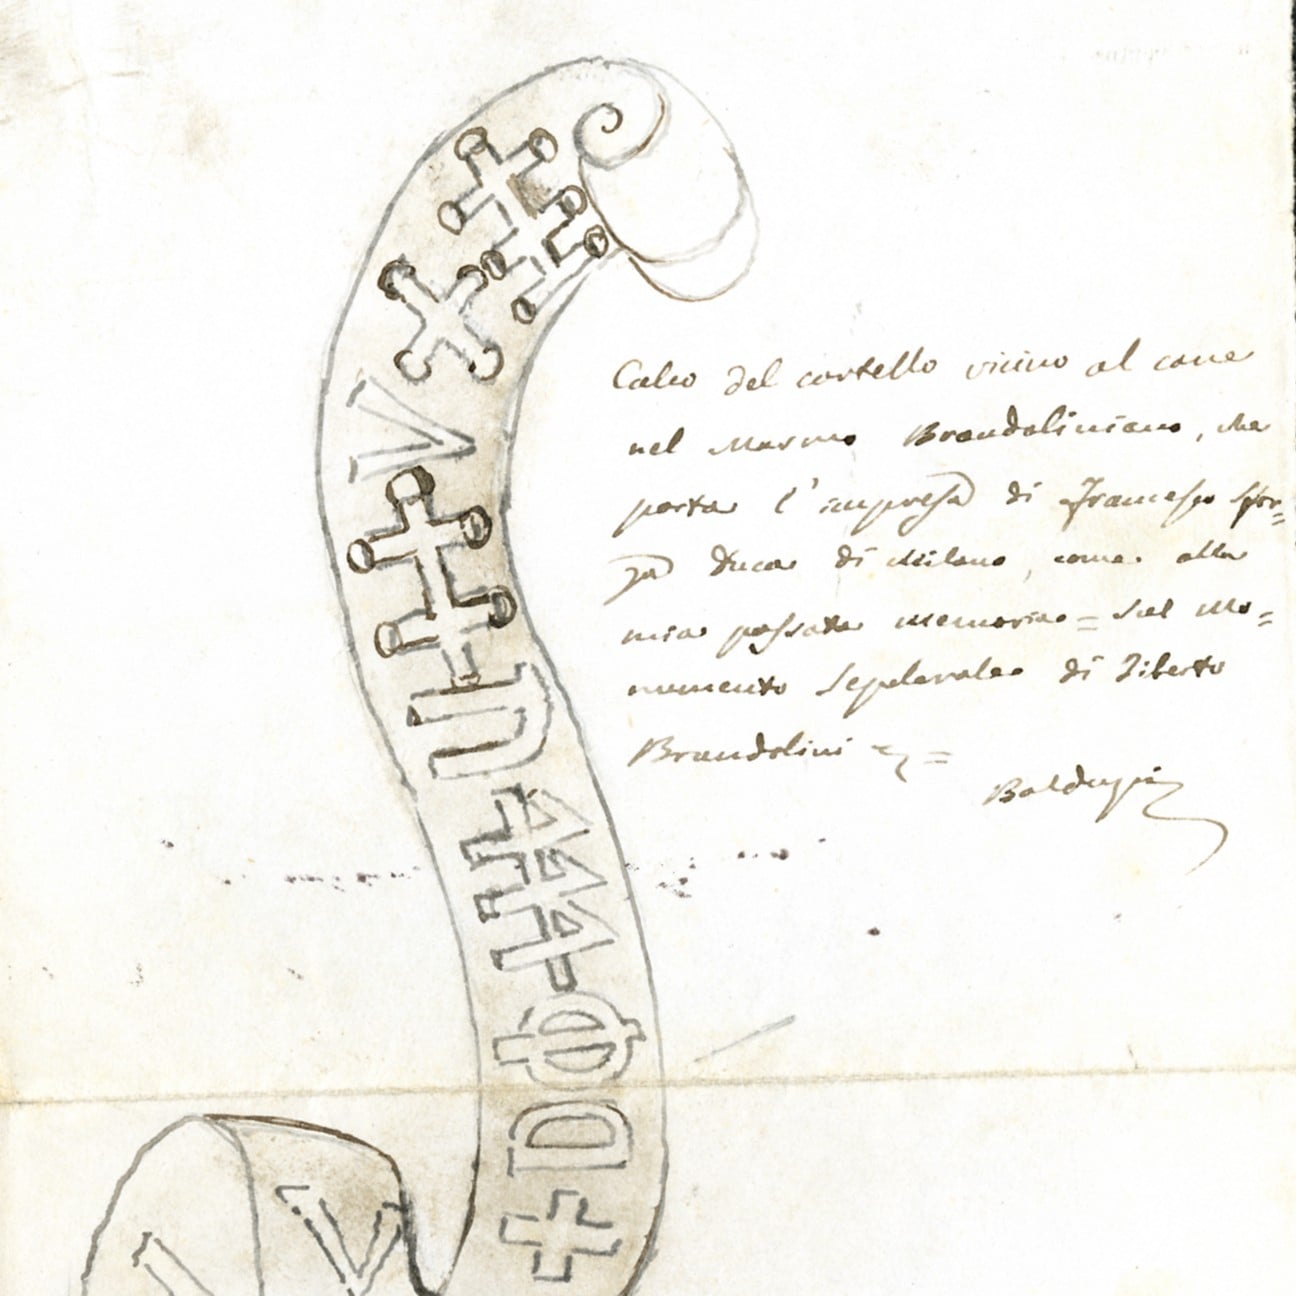 Calco del cartello vicino al cane
nel Marmo Brandoliniano, che
porta l'impresa di Francesco Sfor=
za Duca di Milano, come alla
mia passata memoria = Sul Mo=
numento Sepulcrale di Tiberto
Brandolini =